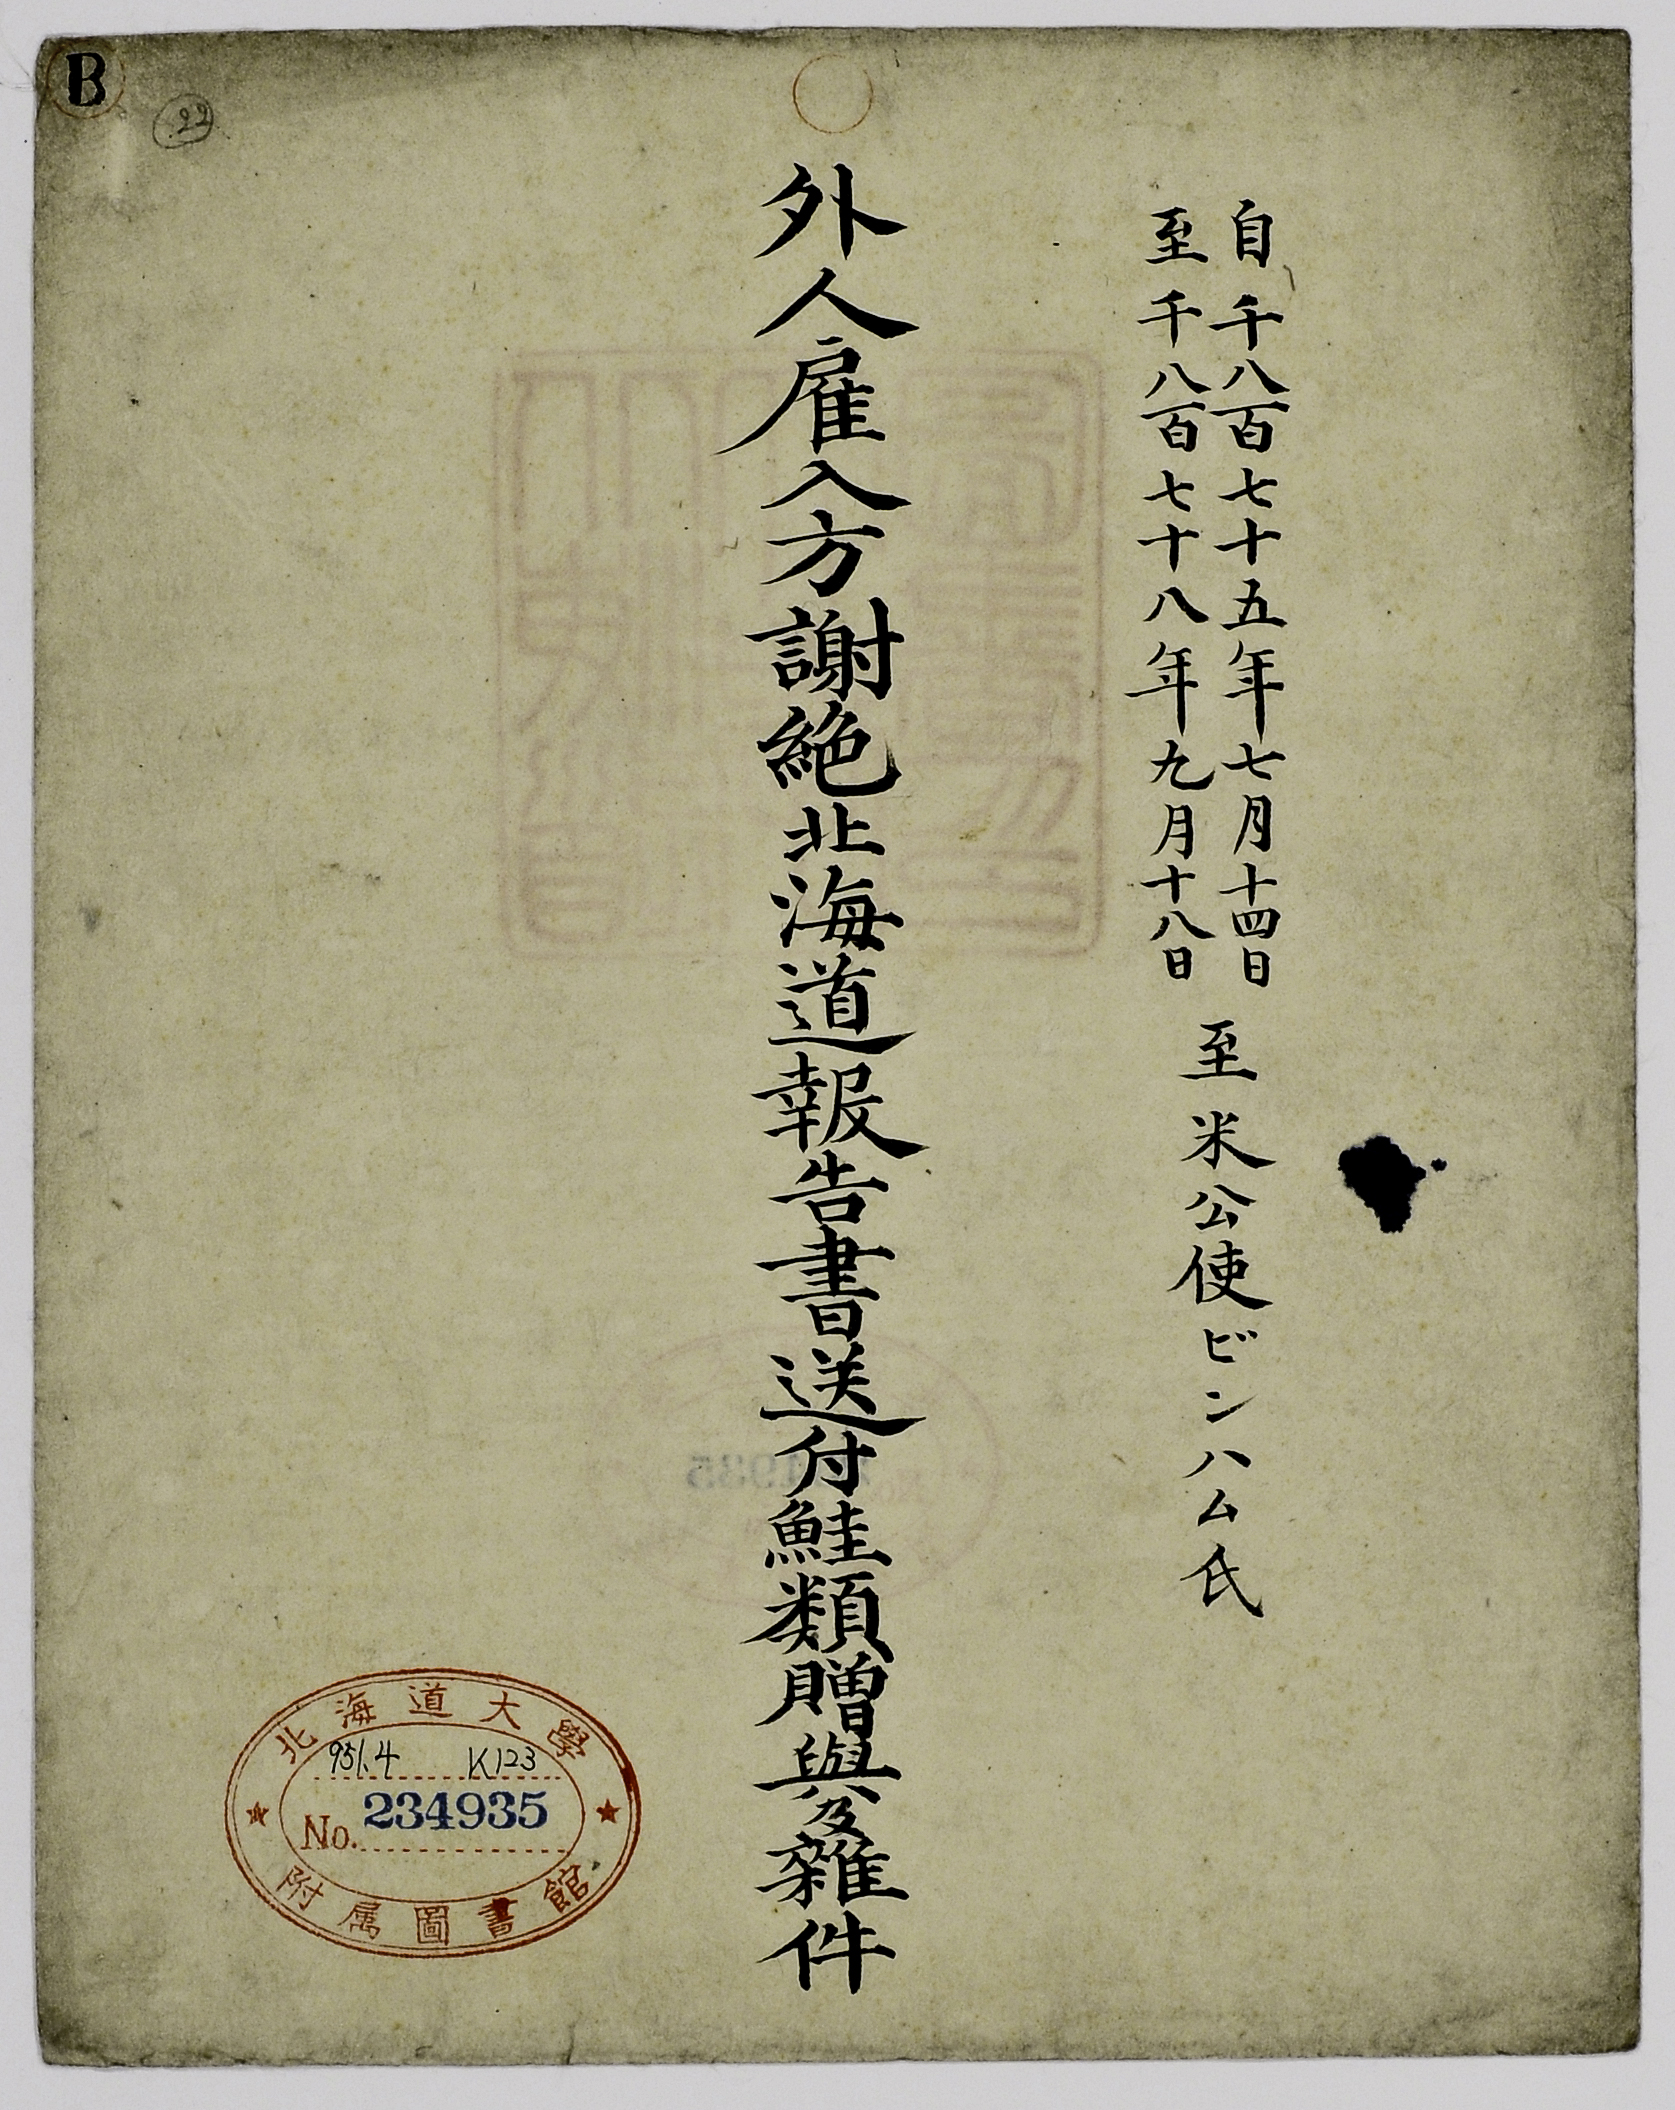 自千八百七十五年七月十四日
至千八百七十八年九月十八日
至米公使ビンハム氏
外人雇入方謝絶北海道報告書送付鮭類贈與及雜件
B
22
北海道大學
951.4 K123
No. 234935
附属圖書館